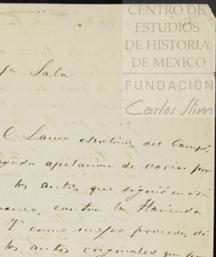 CENTRO DE
ESTUDIOS
DE HISTORIA
DE MEXICO
FUNDACIÓN
Carlos Slim
Sala
C. Lauro Molina del Campo
apelacion de varias
los autos, que siguió en
contra la Hacienda
Y como mejor proceda, di
los autos originales que